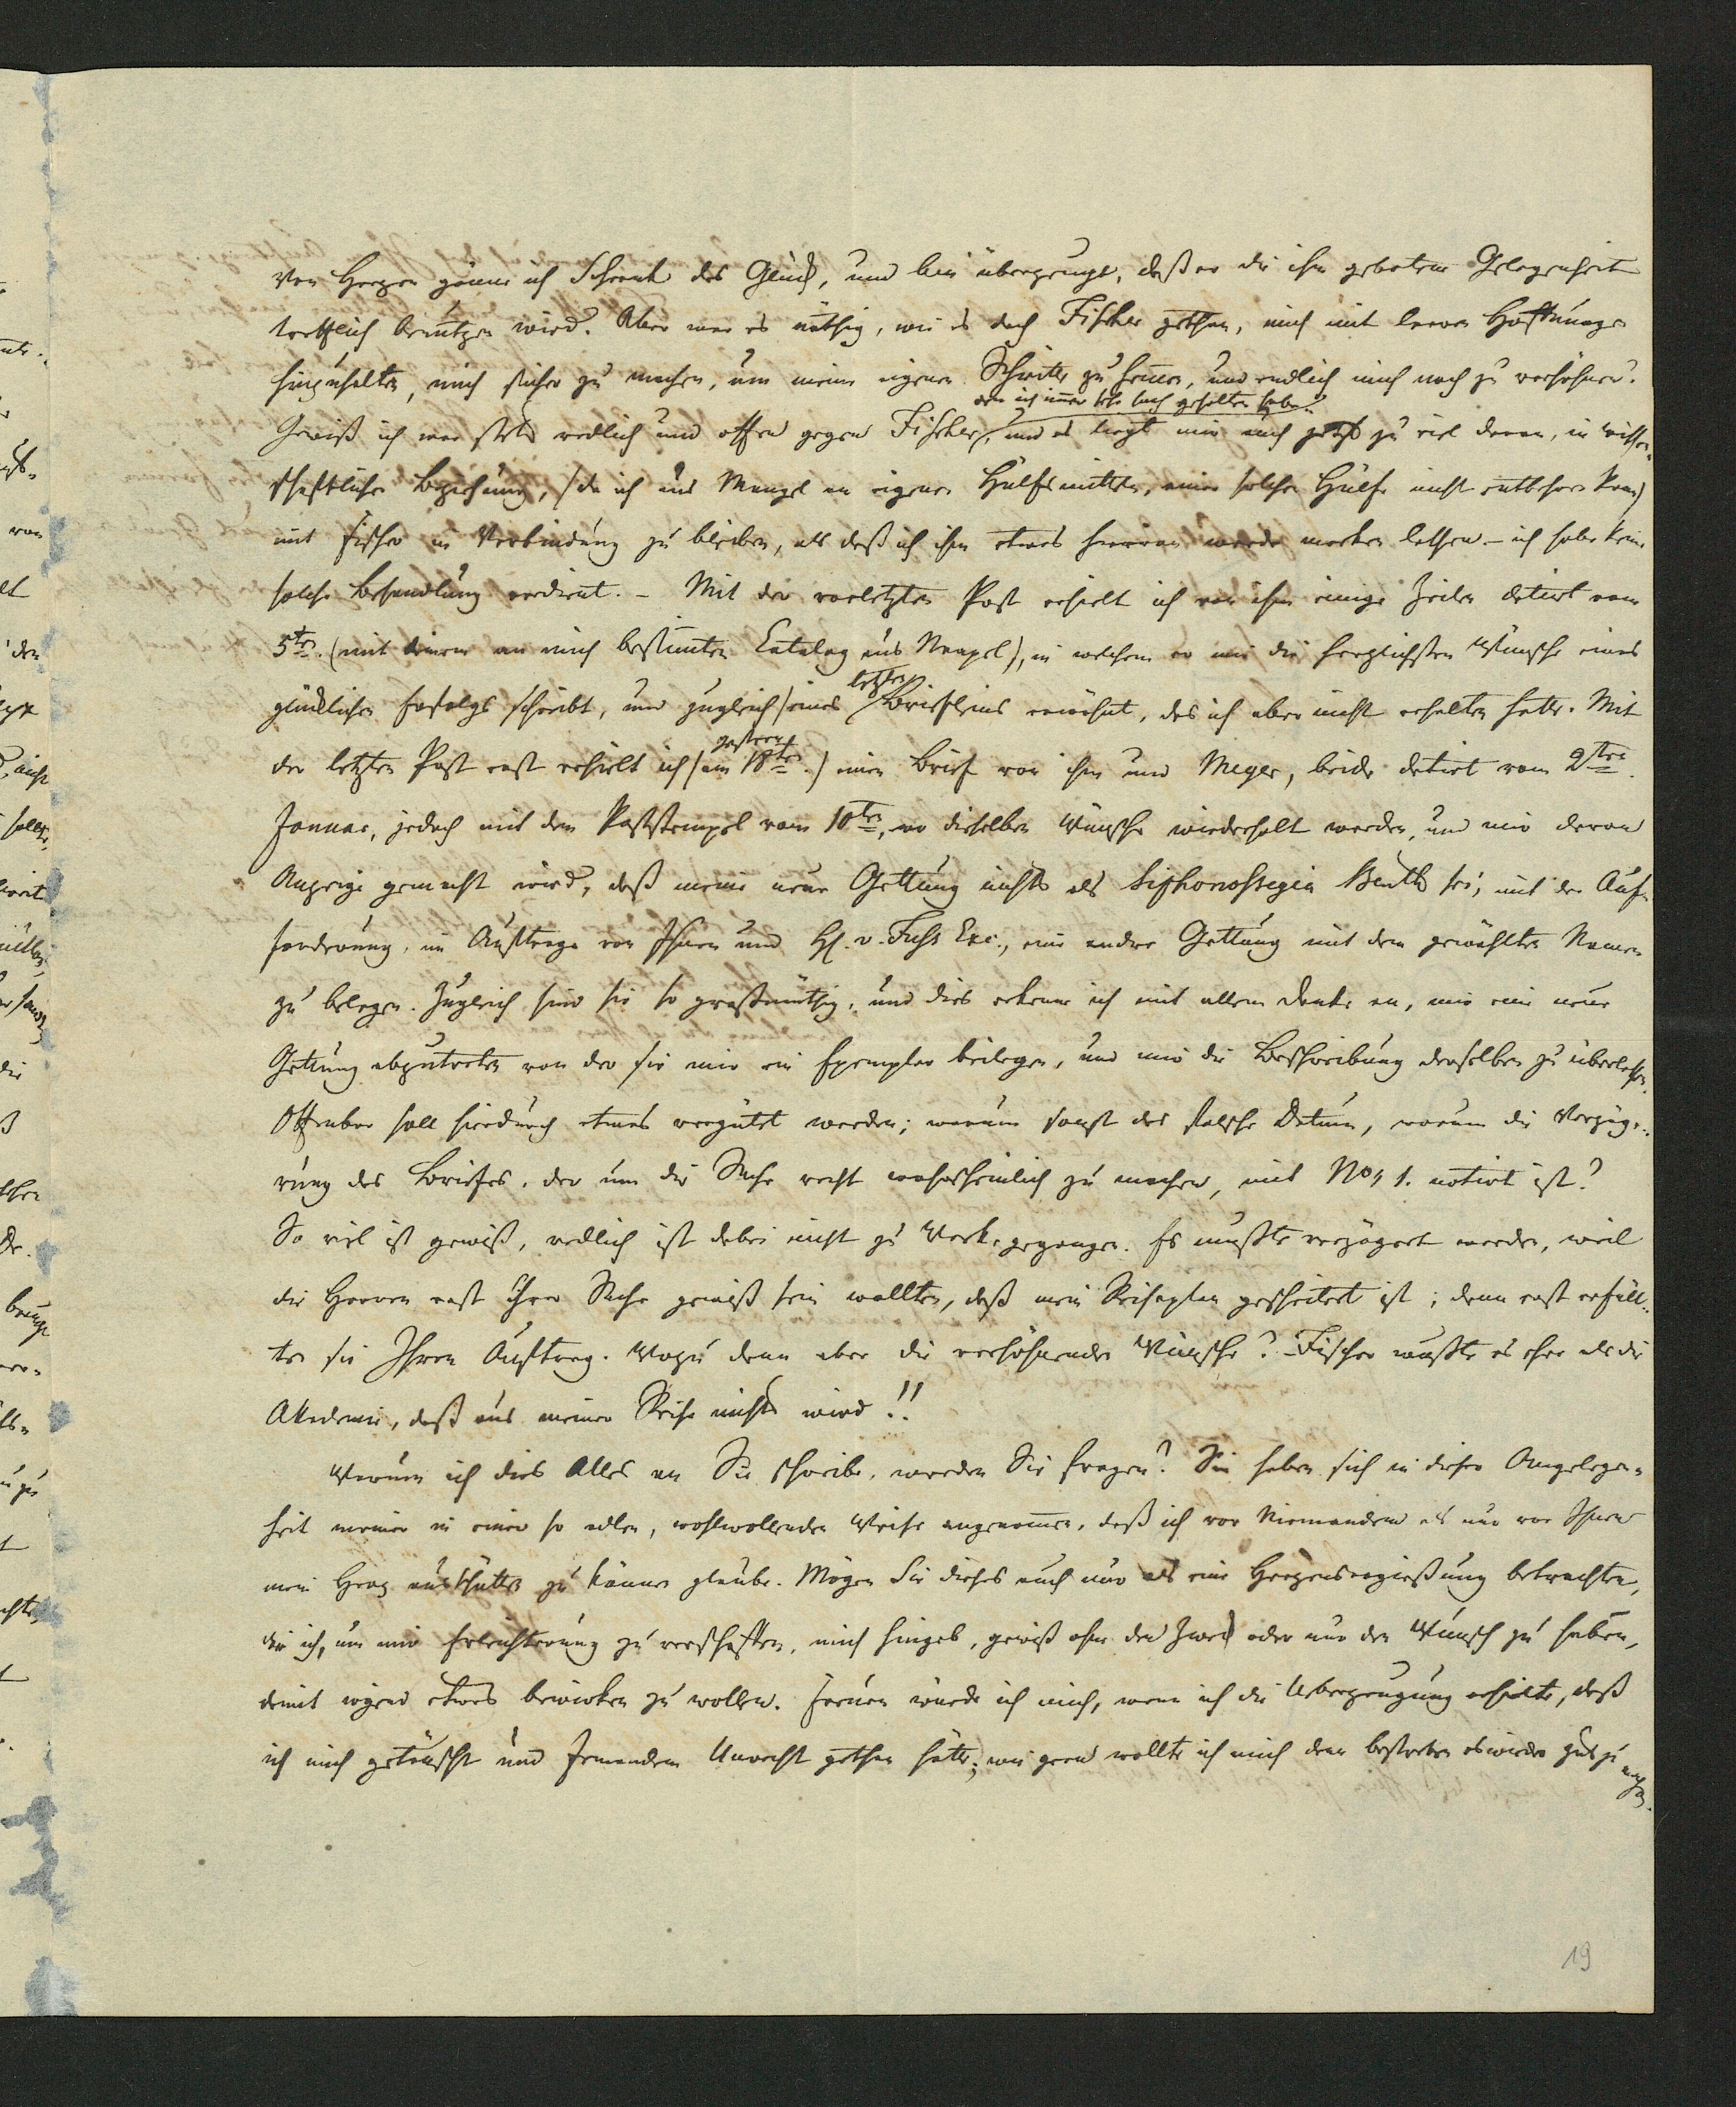 Von Herzen gönne ich Schrenk das Glück, und bin überzeugt, daß er die ihm gebotene Gelegenheit
trefflich benutzen wird. Aber war es nöthig, wie es doch Fischer gethan, mich mit leeren Hoffnungen
hinzuhalten, mich sicher zu machen, um meine eigenen Schritte zu hemen, und endlich mich noch zu verhöhnen.
den ich imer sehr hoch gehalten habe
Gewiß ich war stets redlich und offen gegen Fischer, und es liegt mir auch jetzt zu viel daran, in wissen-
schaftlicher Beziehung, (da ich aus Mangel an eigenen Hülfsmitteln, einer solchen Hülfe nicht entbehren kann)
mit Fischer in Verbindung zu bleiben, als daß ich ihm etwas hiervon werde merken lassen – ich habe keine
solche Behandlung verdient. – Mit der vorletzten Post erhielt ich von ihm einige Zeilen datirt vom
5ten. (mit einem an mich bestimten Catalog aus Neapel), in welchem er mir die herzlichsten Wünsche eines
letzten
glücklichen Erfolgs schreibt, und zugleich seines Briefleins erwähnt, das ich aber nicht erhalten hatte. Mit
gestern
der letzten Post erst erhielt ich (am 18ten.) einen Brief von ihm und Meyer, beide datirt vom 2ten.
Januar, jedoch mit dem Poststempel vom 10ten, wo dieselben Wünsche wiederholt werden, und mir davon
Anzeige gemacht wird, daß meine neue Gattung nichts als Siphonostegia Benth sei, mit der Auf-
forderung, im Auftrage von Ihnen und H. v. Fuss Exc., eine andre Gattung mit dem gewählten Namen
zu belegen. Zugleich sind sie so großmüthig, und dies erkenne ich mit allem Danke an, mir eine neue
Gattung abzutreten von der sie mir ein Exemplar beilegen, und mir die Beschreibung derselben zu überlassen.
Offenbar soll hierdurch etwas vergütet werden; warum sonst das falsche Datum, warum die Verzöge-
rung des Briefes, der um die Sache recht wahrscheinlich zu machen, mit No, 1. notirt ist?
So viel ist gewiß, redlich ist dabei nicht zu Werke gegangen. Es mußte verzögert werden, weil
die Herren erst ihrer Sache gewiß sein wollten, daß mein Reiseplan gescheitert ist; denn erst erfüll-
ten sie Ihren Auftrag. Wozu denn aber die verhöhnenden Wünsche? – Fischer wußte es eher als die
Akademie, daß aus meiner Reise nichts wird!!
Warum ich dies Alles an Sie schreibe, werden Sie fragen? Sie haben sich in dieser Angelegen-
heit meiner in einer so edlen, wohlwollenden Weise angenomen, daß ich vor Niemandem als nur vor Ihnen
mein Herz ausschütten zu könen glaube. Mögen Sie dieses auch nur als eine Herzensergießung betrachten,
der ich, um mir Erleichterung zu verschaffen, mich hingab, gewiß ohne den Zweck oder nur den Wunsch zu haben,
damit irgend etwas bewirken zu wollen. Freuen würde ich mich, wenn ich die Ueberzeugung erhielte, daß
ich mich getäuscht und Jemandem Unrecht gethan hätte; wie gern wollte ich mich dann bestreben es wieder gut zu machen.
19